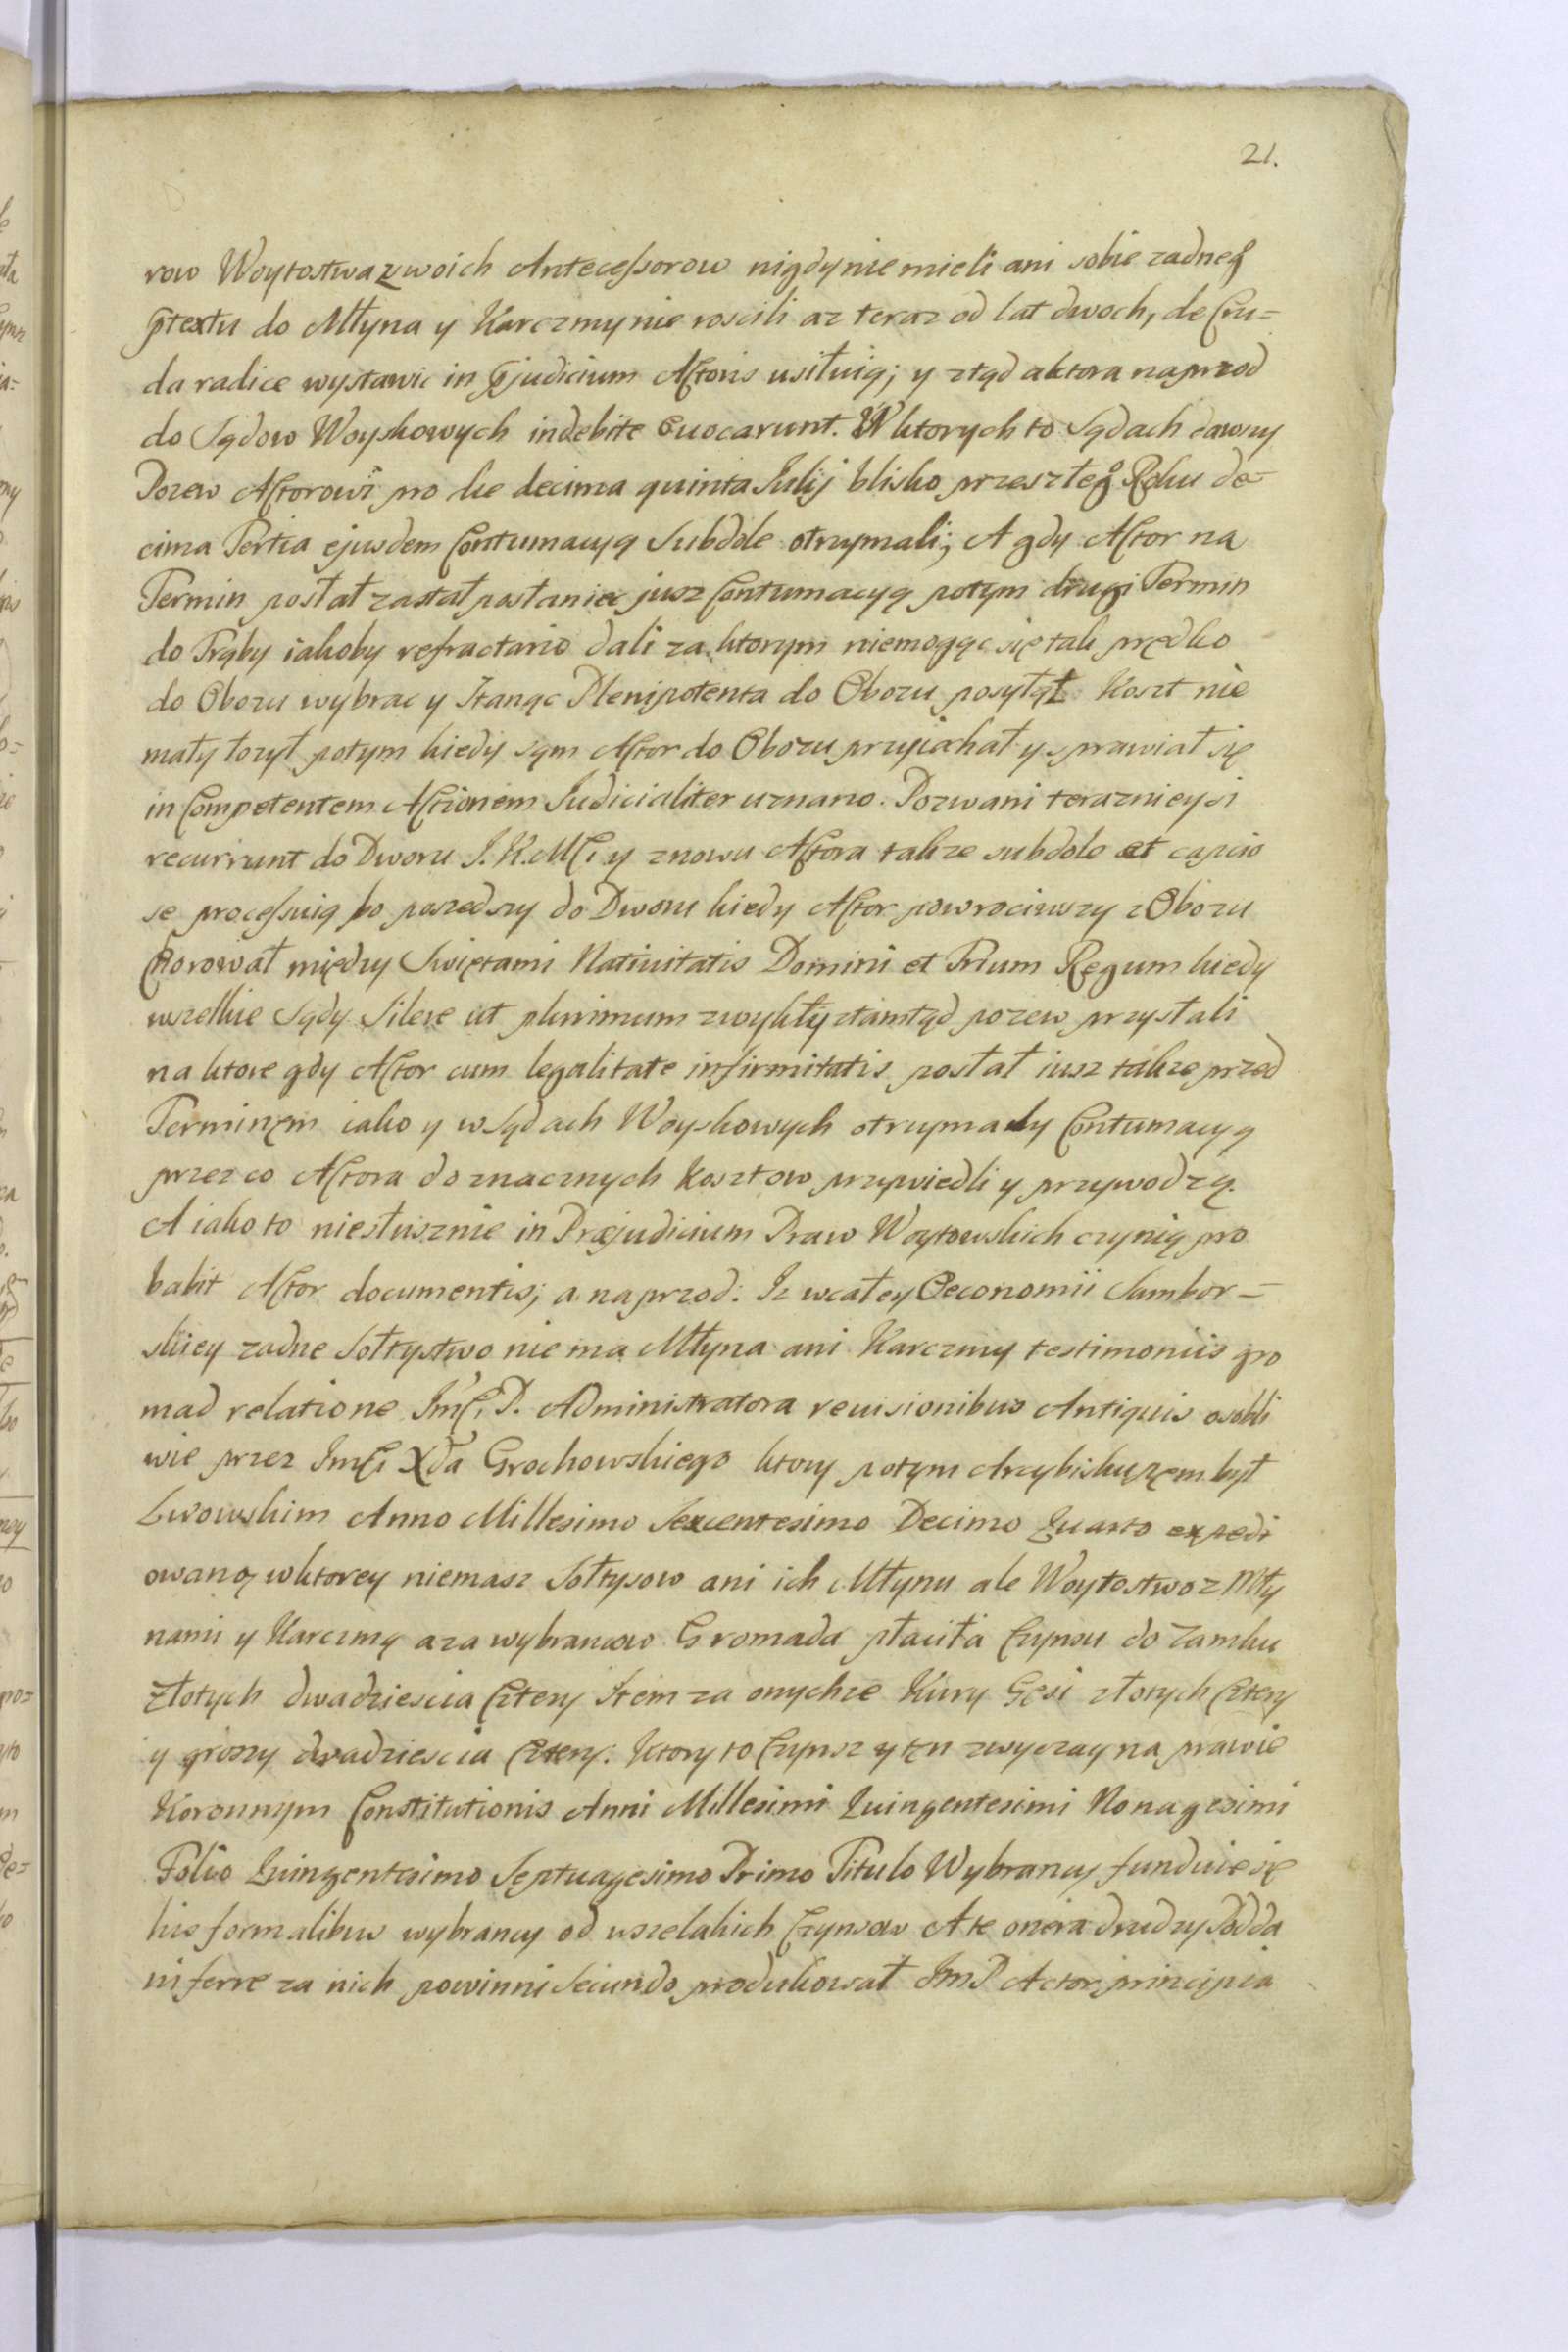 21.
row Woytostwa zwoich Antecessorow nigdy nie mieli ani sobie zadneg
ptextu do Młyna y Karczmy nie roscili az teraz od lat dwoch, de Cru=
da radice wystawic in pjudicium Actoris usiłuią; y ztąd aktora naprzod
do Sądow Woyskowych indebite Evocarunt. W ktorych to Sądach dawszy
Pozew Actorowi pro die decima quinta Julij blisko przeszłeg Roku de=
cima Tertia ejusdem Contumacyą Subdole otrzymali; A gdy Actor na
Termin posłał zastał posłaniec jusz Contumacyą potym drugi Termin
do Trąby iakoby refractario dali za ktorym niemogąc się tak prędko
do Obozu wybrac y Stanąc Plenipotenta do Obozu posyłął Koszt nie
mały łozył potym kiedy sąm Actor do Obozu przyiachał y sprawiał się
in Competentem Actionem Judicialiter uznano. Pozwani teraznieysi
recurrunt do Dworu J. K. Mci y znowu Actora takze subdole et capcio
se processuią bo poszedszy do Dworu kiedy Actor powrociwszy z Obozu
Chorował między Swiętami Nativitatis Domini et Trium Regum kiedy
wszelkie Sądy Silere ut plurimum zwykły ztamtąd pozew przysłali
na ktore gdy Actor cum legalitate infirmitatis posłał iusz takze przed
Terminęm iako y w Sądach Woyskowych otrzymały Contumacyą
przez co Actora do znacznych kosztow przywiedli y przywodzą.
A iako to niesłusznie in Præjudicium Praw Woytowskich czynią pro
babit Actor documentis; a naprzod: Iz w całey Oeconomii Sambor=
skiey zadne Sołtystwo nie ma Młyna ani Karczmy testimoniis gro
mad relatione Jmci P. Administratora revisionibus Antiquis osobli
wie przez Jmci Xda Grochowskiego ktory potym Arcybiskupęm był
Lwowskim Anno Millesimo Sexcentesimo Decimo Quarto expedi
owaną w ktorey niemasz Sołtysow ani ich Młynu ale Woytostwo z Mły
nami y Karczmą a za wybrancow Gromada płaciła Czynszu do Zamku
złotych dwadziescia Cztery Item za onychze Kury Gęsi złotych Cztery
y groszy dwadziescia Cztery. Ktory to Czynsz y tęn zwyczay na prawie
Koronnym Constitutionis Anni Millesimi Quingentesimi Nonagesimi
Folio Quingentesimo Septuagesimo Primo Titulo Wybrancy funduie się
his formalibus wybrancy od wszelakich Czynszow A te onera drudzy Podda
ni ferre za nich powinni Secundo produkował Jm P Actor principia